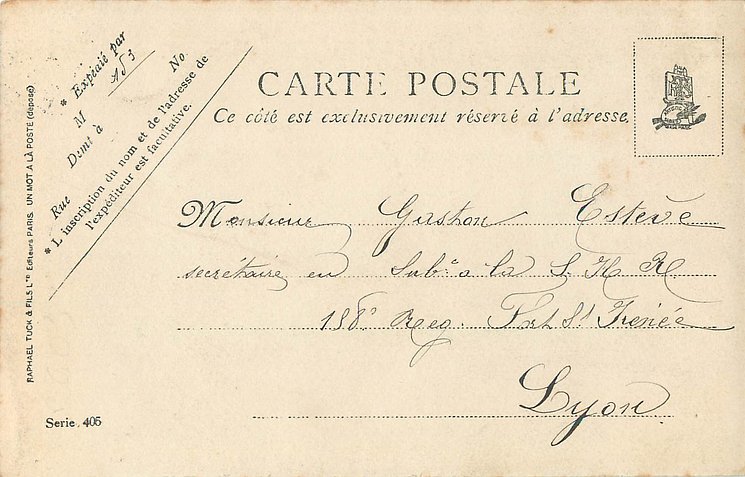 * Expédié par
153
M
No
Demt à
Rue
* L'inscription du nom et de l'adresse de
l'expéditeur est facultative.
RAPHAEL TUCK & FILS Lᵀᴰ Editeurs PARIS. UN MOT A LA POSTE (deposé)
CARTE POSTALE
Ce côté est exclusivement réservé à l'adresse.
Monsieur Gaston Estève
secrétaire en Subᵉ à la S H R
158ᵉ Reg. Fort St Irenée
Lyon
Serie. 405